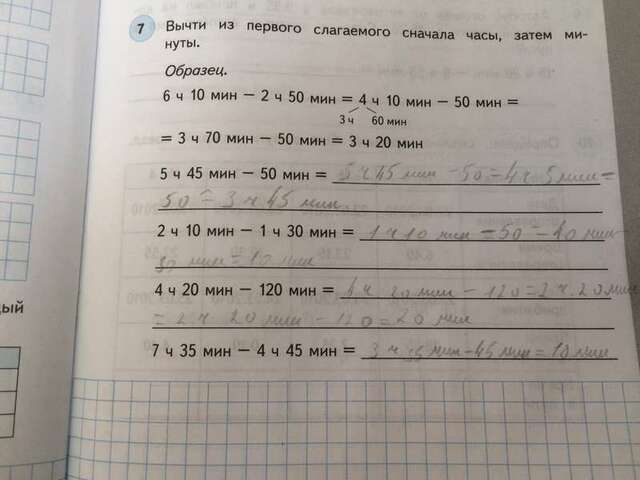 7 Вычти из первого слагаемого сначала часы, затем ми-
нуты.
Образец.
6 ч 10 мин − 2 ч 50 мин = 4 ч 10 мин − 50 мин =
3 ч 60 мин
= 3 ч 70 мин − 50 мин = 3 ч 20 мин
5 ч 45 мин − 50 мин = 5 ч 45 мин − 50 = 4 ч 5 мин =
50 = 3 ч 45 мин
2 ч 10 мин − 1 ч 30 мин = 1 ч 10 мин = 50 − 40 мин
мин = 10 мин
4 ч 20 мин − 120 мин = 4 ч 20 мин − 120 = 2 ч 20 мин
= 2 ч 20 мин − 120 = 20 мин
7 ч 35 мин − 4 ч 45 мин = 3 ч 35 мин − 45 мин = 10 мин